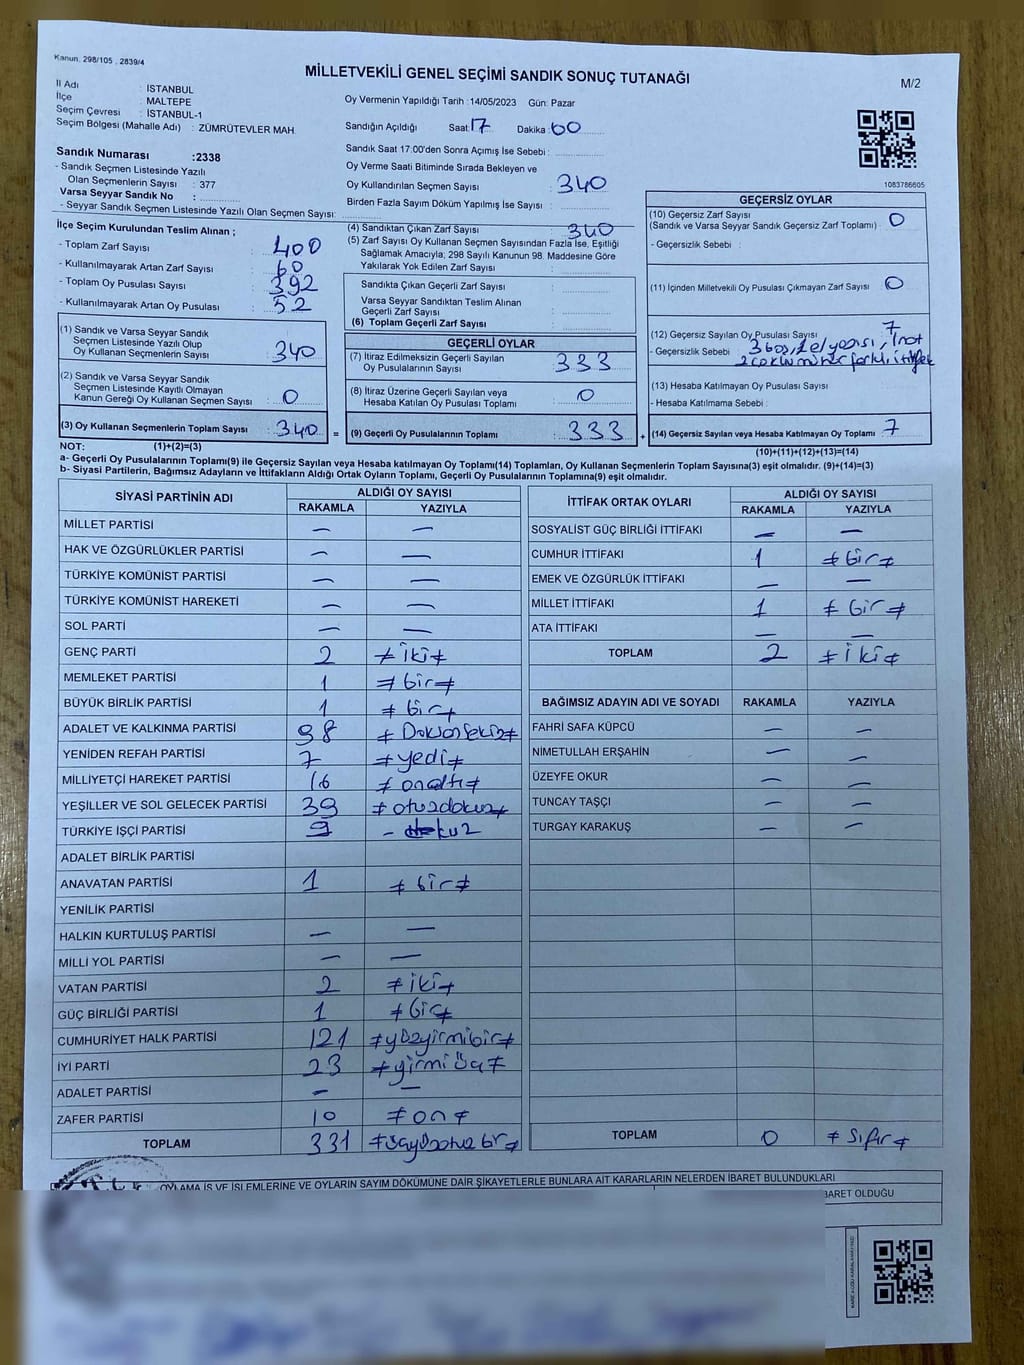 Kanun, 298/105 , 2839/4
MİLLETVEKİLİ GENEL SEÇİMİ SANDIK SONUÇ TUTANAĞI
M/2
İl Adı : İSTANBUL
İlçe : MALTEPE
Seçim Çevresi : İSTANBUL-1
Seçim Bölgesi (Mahalle Adı) : ZÜMRÜTEVLER MAH.
Oy Vermenin Yapıldığı Tarih :14/05/2023 Gün: Pazar
Sandığın Açıldığı Saat:17 Dakika:60
Sandık Saat 17:00'den Sonra Açımış İse Sebebi :
Oy Verme Saati Bitiminde Sırada Bekleyen ve
Oy Kullandırılan Seçmen Sayısı : 340
Birden Fazla Sayım Döküm Yapılmış İse Sayısı :
Sandık Numarası :2338
- Sandık Seçmen Listesinde Yazılı
Olan Seçmenlerin Sayısı : 377
Varsa Seyyar Sandık No :
- Seyyar Sandık Seçmen Listesinde Yazılı Olan Seçmen Sayısı:
1083786605
İlçe Seçim Kurulundan Teslim Alınan ;
- Toplam Zarf Sayısı : 400
- Kullanılmayarak Artan Zarf Sayısı : 60
- Toplam Oy Pusulası Sayısı : 392
- Kullanılmayarak Artan Oy Pusulası : 52
(1) Sandık ve Varsa Seyyar Sandık
Seçmen Listesinde Yazılı Olup
Oy Kullanan Seçmenlerin Sayısı : 340
(2) Sandık ve Varsa Seyyar Sandık
Seçmen Listesinde Kayıtlı Olmayan
Kanun Gereği Oy Kullanan Seçmen Sayısı : 0
(3) Oy Kullanan Seçmenlerin Toplam Sayısı : 340 =
(4) Sandıktan Çıkan Zarf Sayısı : 340
(5) Zarf Sayısı Oy Kullanan Seçmen Sayısından Fazla İse, Eşitliği
Sağlamak Amacıyla; 298 Sayılı Kanunun 98. Maddesine Göre
Yakılarak Yok Edilen Zarf Sayısı :
Sandıkta Çıkan Geçerli Zarf Sayısı :
Varsa Seyyar Sandıktan Teslim Alınan
Geçerli Zarf Sayısı :
(6) Toplam Geçerli Zarf Sayısı :
GEÇERLİ OYLAR
(7) İtiraz Edilmeksizin Geçerli Sayılan
Oy Pusulalarının Sayısı : 333
(8) İtiraz Üzerine Geçerli Sayılan veya
Hesaba Katılan Oy Pusulası Toplamı : 0
(9) Geçerli Oy Pusulalarının Toplamı : 333 +
GEÇERSİZ OYLAR
(10) Geçersiz Zarf Sayısı
(Sandık ve Varsa Seyyar Sandık Geçersiz Zarf Toplamı) : 0
- Geçersizlik Sebebi :
(11) İçinden Milletvekili Oy Pusulası Çıkmayan Zarf Sayısı : 0
(12) Geçersiz Sayılan Oy Pusulası Sayısı : 7
- Geçersizlik Sebebi :
(13) Hesaba Katılmayan Oy Pusulası Sayısı :
- Hesaba Katılmama Sebebi :
(14) Geçersiz Sayılan veya Hesaba Katılmayan Oy Toplamı : 7
NOT: (1)+(2)=(3)
(10)+(11)+(12)+(13)=(14)
a- Geçerli Oy Pusulalarının Toplamı(9) ile Geçersiz Sayılan veya Hesaba katılmayan Oy Toplamı(14) Toplamları, Oy Kullanan Seçmenlerin Toplam Sayısına(3) eşit olmalıdır. (9)+(14)=(3)
b- Siyasi Partilerin, Bağımsız Adayların ve İttifakların Aldığı Ortak Oyların Toplamı, Geçerli Oy Pusulalarının Toplamına(9) eşit olmalıdır.
SİYASİ PARTİNİN ADI ALDIĞI OY SAYISI
RAKAMLA YAZIYLA
MİLLET PARTİSİ — —
HAK VE ÖZGÜRLÜKLER PARTİSİ — —
TÜRKİYE KOMÜNİST PARTİSİ — —
TÜRKİYE KOMÜNİST HAREKETİ — —
SOL PARTİ — —
GENÇ PARTİ 2 ≠iki≠
MEMLEKET PARTİSİ 1 ≠bir≠
BÜYÜK BİRLİK PARTİSİ 1 ≠bir≠
ADALET VE KALKINMA PARTİSİ 98 ≠Doksansekiz≠
YENİDEN REFAH PARTİSİ 7 ≠yedi≠
MİLLİYETÇİ HAREKET PARTİSİ 16 ≠onaltı≠
YEŞİLLER VE SOL GELECEK PARTİSİ 39 ≠otuzdokuz≠
TÜRKİYE İŞÇİ PARTİSİ 9 - dokuz
ADALET BİRLİK PARTİSİ
ANAVATAN PARTİSİ 1 ≠bir≠
YENİLİK PARTİSİ
HALKIN KURTULUŞ PARTİSİ — —
MİLLİ YOL PARTİSİ — —
VATAN PARTİSİ 2 ≠iki≠
GÜÇ BİRLİĞİ PARTİSİ 1 ≠bir≠
CUMHURİYET HALK PARTİSİ 121 ≠yüzyirmibir≠
İYİ PARTİ 23 ≠yirmiüç≠
ADALET PARTİSİ — —
ZAFER PARTİSİ 10 ≠on≠
TOPLAM 331 ≠üçyüzotuzbir≠
İTTİFAK ORTAK OYLARI ALDIĞI OY SAYISI
RAKAMLA YAZIYLA
SOSYALİST GÜÇ BİRLİĞİ İTTİFAKI — —
CUMHUR İTTİFAKI 1 ≠bir≠
EMEK VE ÖZGÜRLÜK İTTİFAKI — —
MİLLET İTTİFAKI 1 ≠bir≠
ATA İTTİFAKI — —
TOPLAM 2 ≠iki≠
BAĞIMSIZ ADAYIN ADI VE SOYADI RAKAMLA YAZIYLA
FAHRİ SAFA KÜPCÜ — —
NİMETULLAH ERŞAHİN — —
ÜZEYFE OKUR — —
TUNCAY TAŞÇI — —
TURGAY KARAKUŞ — —
TOPLAM 0 ≠sıfır≠
OYLAMA İŞ VE İŞLEMLERİNE VE OYLARIN SAYIM DÖKÜMÜNE DAİR ŞİKAYETLERLE BUNLARA AİT KARARLARIN NELERDEN İBARET BULUNDUKLARI
BARET OLDUĞU